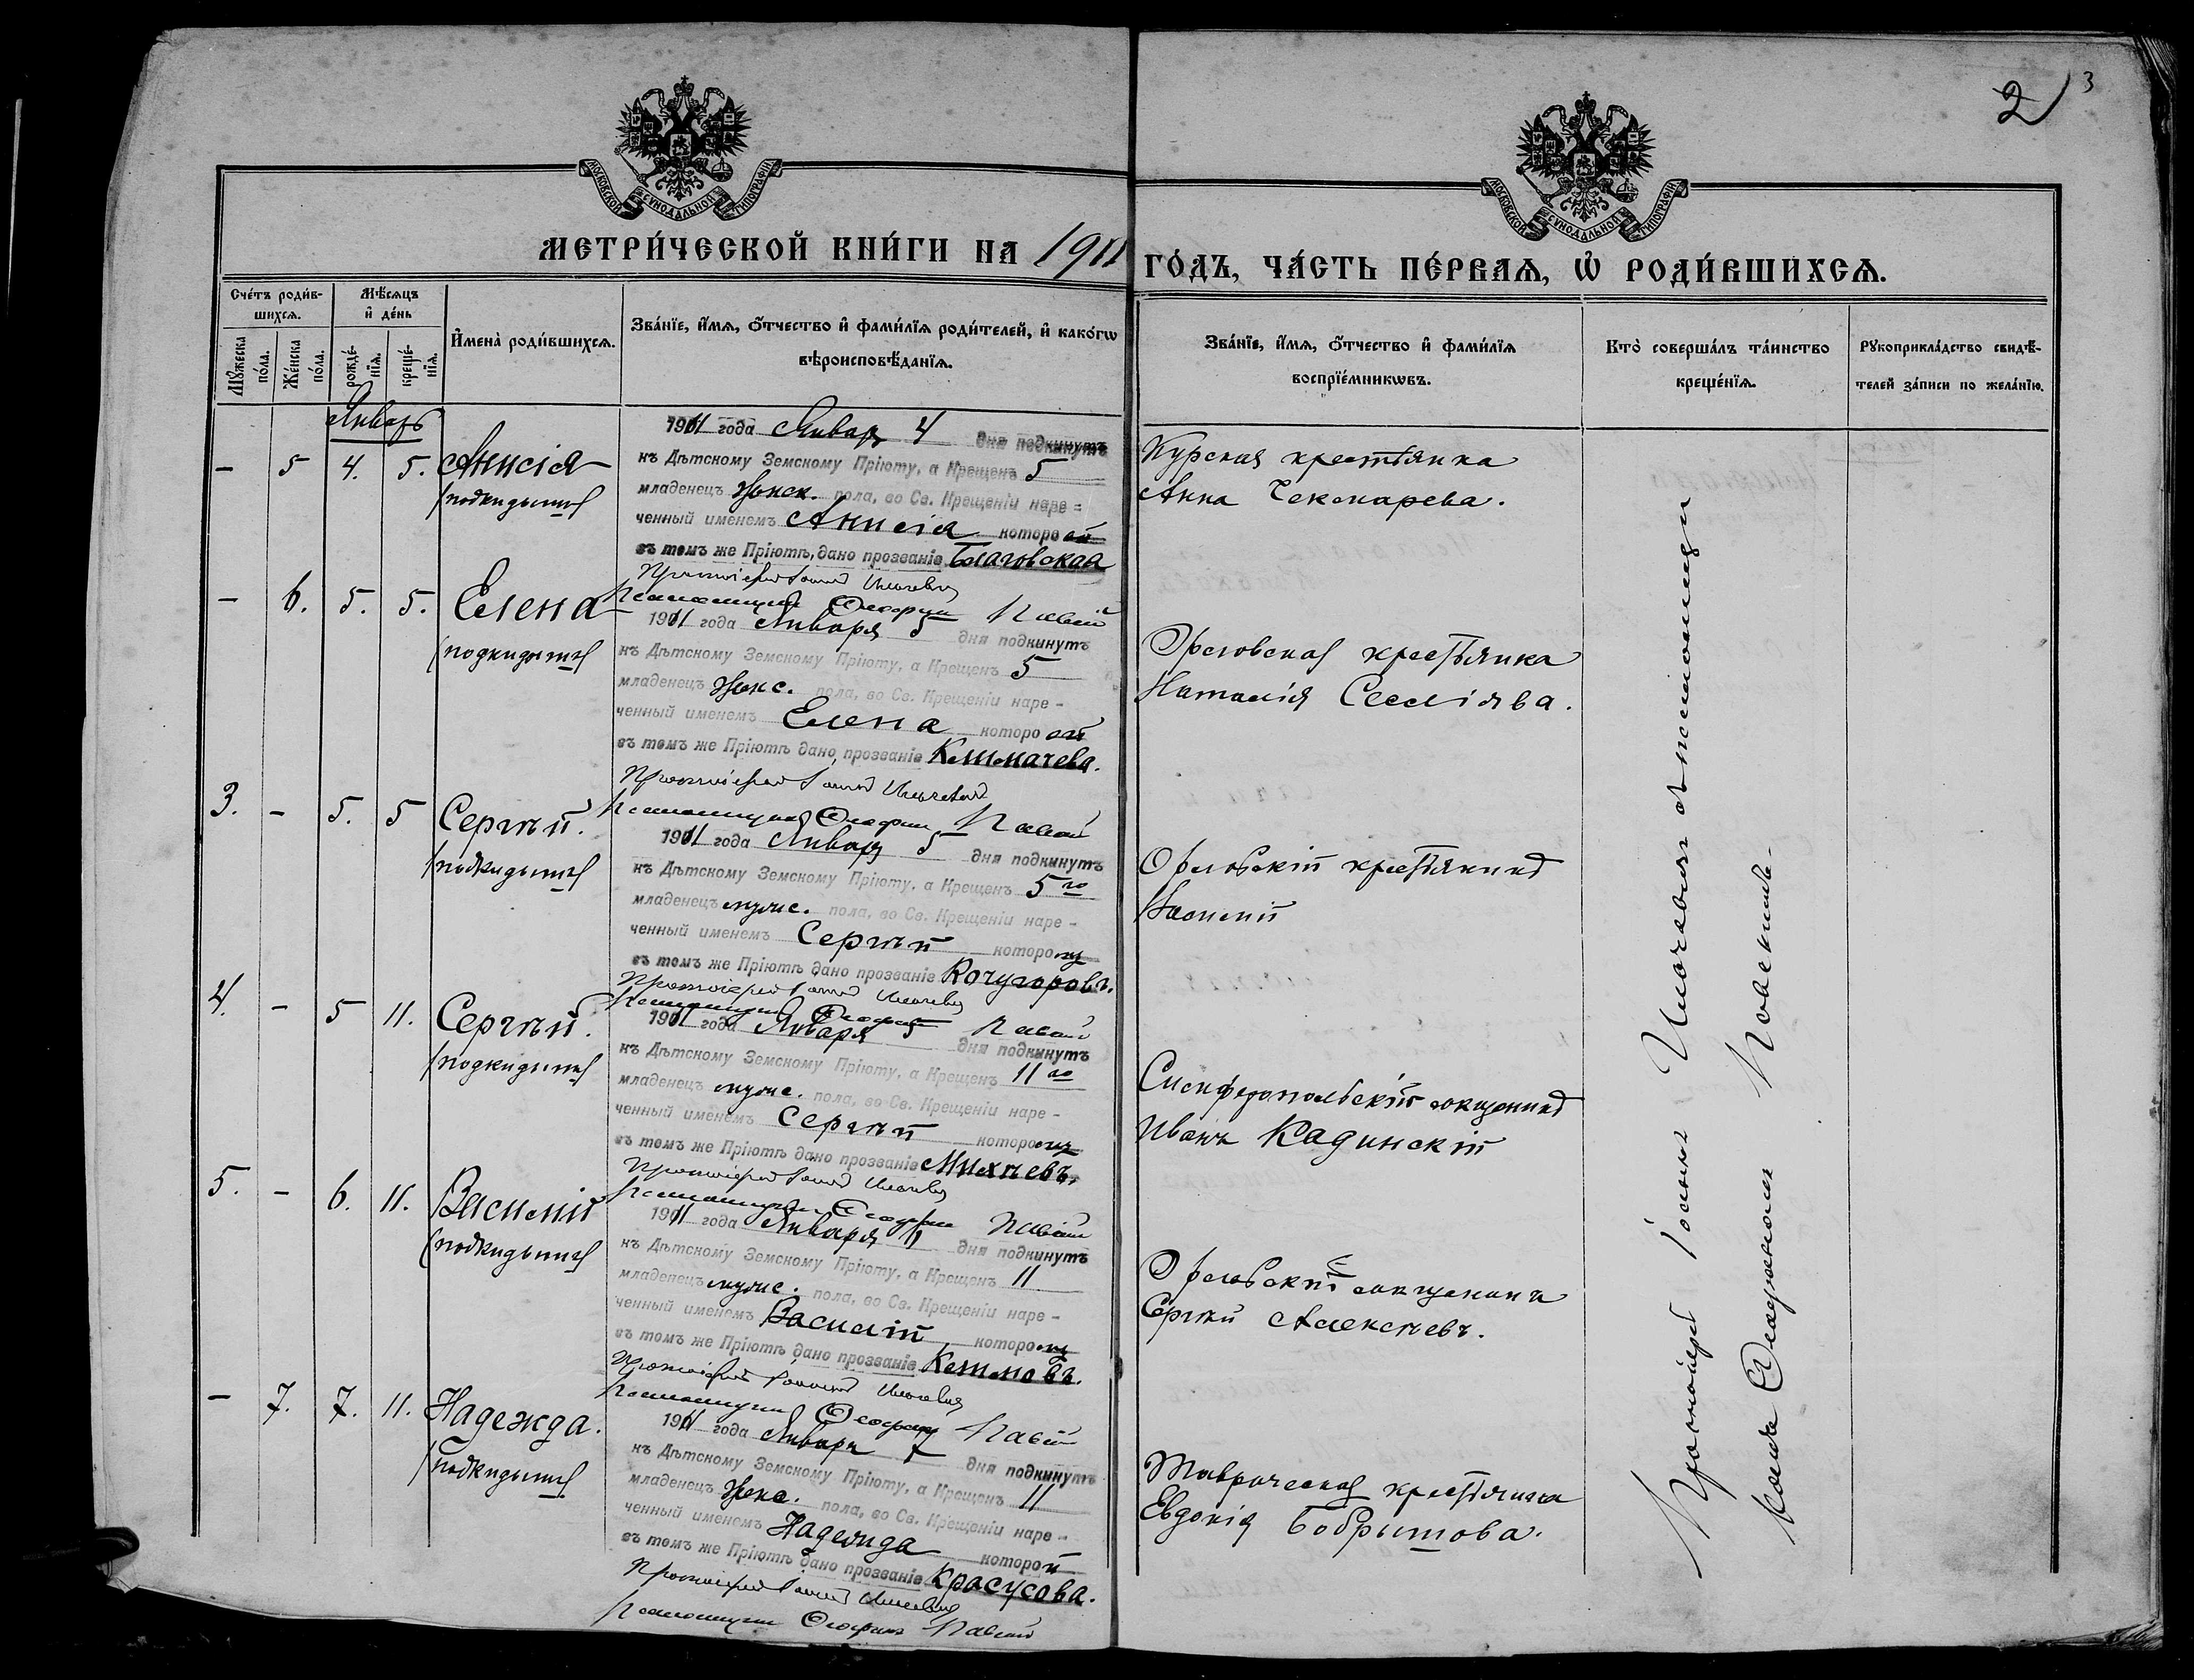 2
3
МОСКОВСКОЙ СѴНОДАЛЬНОЙ ТИПОГРАФІИ
МОСКОВСКОЙ СѴНОДАЛЬНОЙ ТИПОГРАФІИ
МЕТРИ́ЧЕСКОЙ КНИ́ГИ НА 1911 ГО́ДЪ, ЧА́СТЬ ПЕ́РВАѦ, Ѡ҆ РОДИ́ВШИХСѦ.
Сче́тъ роди́в-
шихсѧ.
Мѣ́сѧцъ
и҆ де́нь
Мꙋ́жеска
по́ла.
Же́нска
по́ла.
рожде́-
нїѧ.
креще́-
нїѧ.
И҆мена̀ роди́вшихсѧ.
Зва́нїе, и҆́мѧ, ѻ҆́тчество и҆ фами́лїѧ роди́телей, и҆ како́гѡ
вѣроисповѣ́данїѧ.
Зва́нїе, и҆́мѧ, ѻ҆́тчество и҆ фами́лїѧ
воспрїе́мникѡвъ.
Кто̀ соверша́лъ та́инство
креще́нїѧ.
Рꙋкоприкла́дство свидѣ́-
телей за́писи по жела́нїю.
Январь
— 5 4. 5. Анисія
подкидышъ
1911 года Январ 4 дня подкинутъ
къ Дѣтскому Земскому Пріюту, а Крещенъ 5
младенецъ женск. пола, во Св. Крещеніи наре-
ченный именемъ Анисія которой
въ томъ же Пріютѣ, дано прозваніе Благовская
Протоіерей Іоаннъ
Псаломщикъ
Курская крестьянка
Анна Чекмарева.
— 6. 5. 5. Елена
подкидышъ
1911 года Января 5 дня подкинутъ
къ Дѣтскому Земскому Пріюту, а Крещенъ 5
младенецъ женс. пола, во Св. Крещеніи наре-
ченный именемъ Елена которой
въ томъ же Пріютѣ дано, прозваніе
Протоіерей Іоаннъ
Псаломщикъ
Орловская крестьянка
Наталія
3. — 5. 5 Сергѣй.
подкидышъ
1911 года Январ 5 дня подкинутъ
къ Дѣтскому Земскому Пріюту, а Крещенъ 5го
младенецъ мужс. пола, во Св. Крещеніи наре-
ченный именемъ Сергѣй которому
въ томъ же Пріютѣ дано прозваніе Кочугоровъ.
Протоіерей Іоаннъ
Псаломщикъ
Орловскій крестьянинъ
4. — 5 11. Сергѣй.
подкидышъ
1911 года Января 5 дня подкинутъ
къ Дѣтскому Земскому Пріюту, а Крещенъ 11го
младенецъ мужс. пола, во Св. Крещеніи наре-
ченный именемъ Сергѣй которому
въ томъ же Пріютѣ дано прозваніе Михѣевъ.
Протоіерей Іоаннъ
Псаломщикъ
Симферопольскій мѣщанинъ
Иванъ Кадинскій
5. — 6. 11. Василій
подкидышъ
1911 года Января 6 дня подкинутъ
къ Дѣтскому Земскому Пріюту, а Крещенъ 11
младенецъ мужс. пола, во Св. Крещеніи наре-
ченный именемъ Василій которому
въ томъ же Пріютѣ дано прозваніе
Протоіерей Іоаннъ
Псаломщикъ
Орловскій мѣщанинъ
Сергѣй Алексѣевъ.
— 7. 7. 11. Надежда.
подкидышъ
1911 года Январь 7 дня подкинутъ
къ Дѣтскому Земскому Пріюту, а Крещенъ 11
младенецъ женс. пола, во Св. Крещеніи наре-
ченный именемъ Надежда которой
въ томъ же Пріютѣ дано прозваніе Красусова.
Протоіерей Іоаннъ
Псаломщикъ
Таврическая крестьянка
Евдокія Бобрышова.
Протоіерей Іоаннъ съ псаломщи